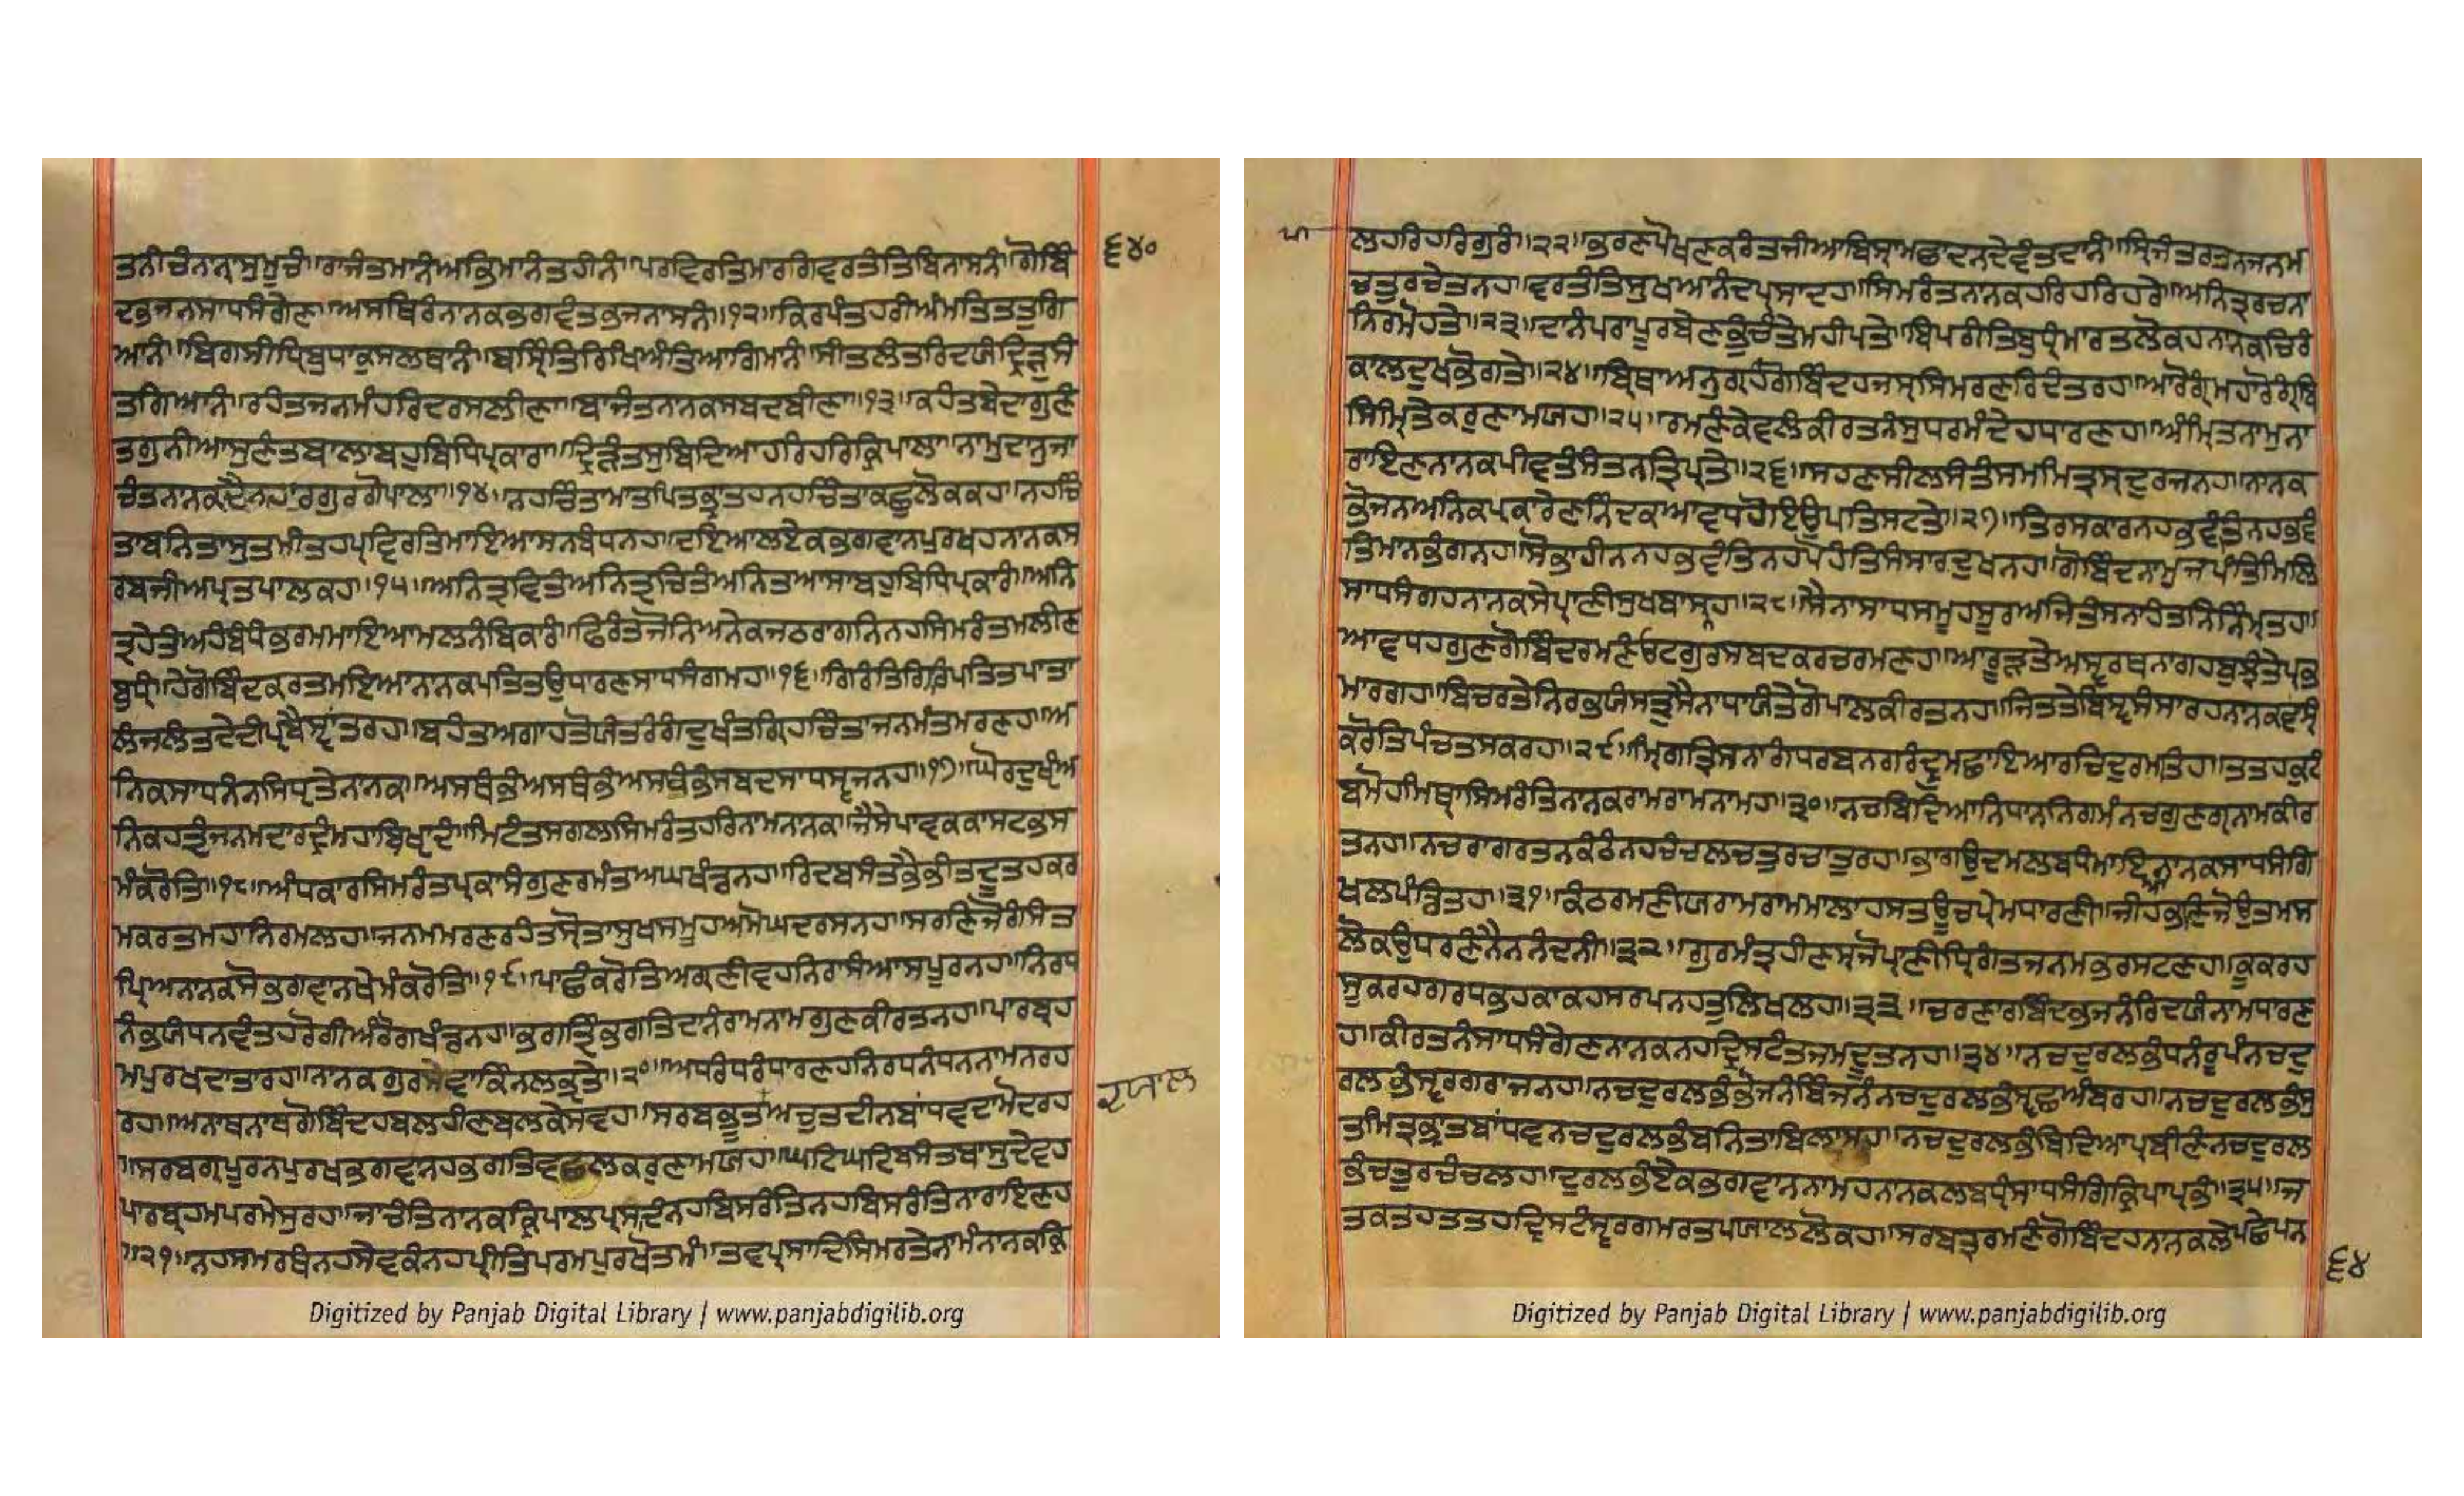 ਤਨੀਚੰਨਨ੍ਯਾਸੁਮੁਚੰ॥ਰਾਜੰਤਮਾਨੰਅਭਿਮਾਨੰਤਹੀਨੰ॥ਪਰਵਿਰਤਿਮਾਰਗਿਵਰਤੰਤਿਬਿਨਾਸਨੰ॥ਗੋਬਿੰ
ਦਭਜਨਸਾਧਸੰਗੇਣ॥ਅਸਥਿਰੰਨਾਨਕਭਗਵੰਤਭਜਨਾਸਨੰ॥੧੨॥ਕਿਰਪੰਤਹਰੀਅੰਮਤਿਤਤੁਗਿ
ਆਨੰ॥ਬਿਗਸੀਧ੍ਹਿਬੁਧਾਕੁਸਲਥਾਨੰ॥ਬਸ੍ਹਿੰਤਿਰਿਖਿਅੰਤਿਆਗਿਮਾਨੰ॥ਸੀਤਲੰਤਰਿਦਯੰਦ੍ਰਿੜੁਸੰ
ਤਗਿਆਨੰ॥ਰਹੰਤਜਨਮੰਹਰਿਦਰਸਲੀਣਾ॥ਬਾਜੰਤਨਾਨਕਸਬਦਬੀਣਾ॥੧੩॥ਕਹੰਤਬੇਦਾਗੁਣੰ
ਤਗੁਨੀਆਸੁਣੰਤਬਾਲਾਬਹੁਬਿਧਿਪ੍ਰਕਾਰਾ॥ਦ੍ਰਿੜੰਤਸੁਬਿਦਿਆਹਰਿਹਰਿਕ੍ਰਿਪਾਲਾ॥ਨਾਮੁਦਾਨੁਜਾ
ਚੰਤਨਾਨਕਦੈਨਹਾਰਗੁਰਗੋਪਾਲਾ॥੧੪॥ਨਹਚਿੰਤਾਮਾਤਪਿਤਭ੍ਰਾਤਹਨਹਚਿੰਤਾਕਛੁਲੋਕਕਹ॥ਨਹਚਿੰ
ਤਾਬਨਿਤਾਸੁਤਮੀਤਹਪ੍ਰਵਿਰਤਿਮਾਇਆਸਨਬੰਧਨਹ॥ਦਇਆਲਏਕਭਗਵਾਨਪੁਰਖਹਨਾਨਕਸ
ਰਬਜੀਅਪ੍ਰਤਪਾਲਕਹ॥੧੫॥ਅਨਿਤ੍ਯਵਿਤੰਅਨਿਤ੍ਯਚਿਤੰਅਨਿਤਆਸਾਬਹੁਬਿਧਿਪ੍ਰਕਾਰੰ॥ਅਨਿ
ਤ੍ਯਹੇਤੰਅਹੰਬੰਧੰਭਰਮਮਾਇਆਮਲਨੰਬਿਕਾਰੰ॥ਫਿਰੰਤਜੋਨਿਅਨੇਕਜਠਰਾਗਨਿਨਹਸਿਮਰੰਤਮਲੀਣ
ਬੁਧ੍ਯੰ॥ਹੇਗੋਬਿੰਦਕਰਤਮਇਆਨਾਨਕਪਤਿਤਉਧਾਰਣਸਾਧਸੰਗਮਹ॥੧੬॥ਗਿਰੰਤਿਗਿਰਿਪਤਿਤਪਾਤਾ
ਲੰਜਲੰਤਦੇਦੀਪ੍ਯਬੈਸ੍ਵਾਂਤਰਹ॥ਬਹੰਤਅਗਾਹਤੋਯੰਤਰੰਗੰਦੁਖੰਤਗ੍ਰਹਿਚਿੰਤਾਜਨਮੰਤਮਰਣਹ॥ਅ
ਨਿਕਸਾਧਨੰਨਸਿਧ੍ਯਤੇਨਾਨਕ॥ਅਸਥੰਭੰਅਸਥੰਭੰਅਸਥੰਭੰਸਬਦਸਾਧਸ੍ਵਜਨਹ॥੧੭॥ਘੋਰਦੁਖੵੰਅ
ਨਿਕਹਤ੍ਯੰਜਨਮਦਾਰਦ੍ਰੰਮਹਾਬਿਖੵਾਦੰ॥ਮਿਟੰਤਸਗਲਸਿਮਰੰਤਹਰਿਨਾਮਨਾਨਕ॥ਜੈਸੇਪਾਵਕਕਾਸਟਭਸ
ਮੰਕਰੋਤਿ॥੧੮॥ਅੰਧਕਾਰਸਿਮਰੰਤਪ੍ਰਕਾਸੰਗੁਣਰਮੰਤਅਘਖੰਡਨਹ॥ਰਿਦਬਸੰਤਭੈਭੀਤਦੂਤਹਕਰ
ਮਕਰਤਮਹਾਨਿਰਮਲਹ॥ਜਨਮਮਰਣਰਹੰਤਸ੍ਰੋਤਾਸੁਖਸਮੂਹਅਮੋਘਦਰਸਨਹ॥ਸਰਣਿਜੋਗੰਸੰਤ
ਪ੍ਰਿਅਨਾਨਕਸੋਭਗਵਾਨਖੇਮੰਕਰੋਤਿ॥੧੯॥ਪਾਛੰਕਰੋਤਿਅਗ੍ਰਣੀਵਹਨਿਰਾਸੰਆਸਪੂਰਨਹ॥ਨਿਰਧ
ਨੰਭਯੰਧਨਵੰਤਹਰੋਗੀਅੰਰੋਗਖੰਡਨਹ॥ਭਗਤ੍ਯਿੰਭਗਤਿਦਾਨੰਰਾਮਨਾਮਗੁਣਕੀਰਤਨਹ॥ਪਾਰਬ੍ਰਹ
ਮਪੁਰਖਦਾਤਾਰਹ॥ਨਾਨਕਗੁਰਸੇਵਾਕਿੰਨਲਭ੍ਯਤੇ॥੨੦॥ਅਧਰੰਧਰੰਧਾਰਣਹਨਿਰਧਨੰਧਨਨਾਮਨਰਹ
ਰਹ॥ਅਨਾਥਨਾਥਗੋਬਿੰਦਹਬਲਹੀਣਬਲਕੇਸਵਹ॥ਸਰਬਭੂਤਅਚੁਤਦੀਨਬਾਂਧਵਦਾਮੋਦਰਹ
ਰਯਾਲ
॥ਸਰਬਗ੍ਯਪੂਰਨਪੁਰਖਭਗਵਾਨਹਭਗਤਿਵਛਲਕਰੁਣਾਮਯਹ॥ਘਟਿਘਟਿਬਸੰਤਬਾਸੁਦੇਵਹ
ਪਾਰਬ੍ਰਹਮਪਰਮੇਸੁਰਹ॥ਜਾਚੰਤਿਨਾਨਕਕ੍ਰਿਪਾਲਪ੍ਰਸਾਦੰਨਹਬਿਸਰੰਤਿਨਹਬਿਸਰੰਤਿਨਾਰਾਇਣਹ
॥੨੧॥ਨਹਸਮਰਥੰਨਹਸੇਵਕੰਨਹਪ੍ਰੀਤਿਪਰਮਪੁਰਖੋਤਮੰ॥ਤਵਪ੍ਰਸਾਦਿਸਿਮਰਤੇਨਾਮੰਨਾਨਕਕ੍ਰਿ
੬੪੦
Digitized by Panjab Digital Library | www.panjabdigilib.org
ਪਾ
ਲਹਰਿਹਰਿਗੁਰੰ॥੨੨॥ਭਰਣਪੋਖਣਕਰੰਤਜੀਆਬਿਸ੍ਰਾਮਛਾਦਨਦੇਵੰਤਦਾਨੰ॥ਸ੍ਰਿਜੰਤਰਤਨਜਨਮ
ਚਤੁਰਚੇਤਨਹ॥ਵਰਤੰਤਿਸੁਖਆਨੰਦਪ੍ਰਸਾਦਹ॥ਸਿਮਰੰਤਨਾਨਕਹਰਿਹਰਿਹਰੇ॥ਅਨਿਤ੍ਯਰਚਨਾ
ਨਿਰਮੋਹਤੇ॥੨੩॥ਦਾਨੰਪਰਾਪੂਰਬੇਣਭੁੰਚੰਤੇਮਹੀਪਤੇ॥ਬਿਪਰੀਤਿਬੁਧ੍ਯੰਮਾਰਤਲੋਕਹਨਾਨਕਚਿਰੰ
ਕਾਲਦੁਖਭੋਗਤੇ॥੨੪॥ਬ੍ਰਿਥਾਅਨੁਗ੍ਰਹੰਗੋਬਿੰਦਹਜਸ੍ਯਸਿਮਰਣਰਿਦੰਤਰਹ॥ਆਰੋਗ੍ਯੰਮਹਾਰੋਗ੍ਯੰਬਿ
ਸਿਮ੍ਰਿਤੇਕਰੁਣਾਮਯਹ॥੨੫॥ਰਮਣੰਕੇਵਲੰਕੀਰਤਨੰਸੁਧਰਮੰਦੇਹਧਾਰਣਹ॥ਅੰਮ੍ਰਿਤਨਾਮੁਨਾ
ਰਾਇਣਨਾਨਕਪੀਵਤੰਸੰਤਨਤ੍ਰਿਪ੍ਯਤੇ॥੨੬॥ਸਹਣਸੀਲਸੰਤੰਸਮਮਿਤ੍ਰਸ੍ਯਦੁਰਜਨਹ॥ਨਾਨਕ
ਭੋਜਨਅਨਿਕਪ੍ਰਕਾਰੇਣਨਿੰਦਕਆਵਧਹੋਇਉਪਤਿਸਟਤੇ॥੨੭॥ਤਿਰਸਕਾਰਨਹਭਵੰਤਿਨਹਭਵੰ
ਤਿਮਾਨਭੰਗਨਹ॥ਸੋਭਾਹੀਨਨਹਭਵੰਤਿਨਹਪੋਹੰਤਿਸੰਸਾਰਦੁਖਨਹ॥ਗੋਬਿੰਦਨਾਮੁਜਪੰਤਿਮਿਲਿ
ਸਾਧਸੰਗਹਨਾਨਕਸੇਪ੍ਰਾਣੀਸੁਖਬਾਸਨਹ॥੨੮॥ਸੈਨਾਸਾਧਸਮੂਹਸੂਰਅਜਿਤੰਸਨਾਹੰਤਨਿਨਿੰਮ੍ਰਤਹ॥
ਆਵਧਹਗੁਣਗੋਬਿੰਦਰਮਣੰਓਟਗੁਰਸਬਦਕਰਚਰਮਣਹ॥ਆਰੂੜਤੇਅਸ੍ਵਰਥਨਾਗਹਬੁਝੰਤੇਪ੍ਰਭ
ਮਾਰਗਹ॥ਬਿਚਰਤੇਨਿਰਭਯੰਸਤ੍ਰੁਸੈਨਾਧਾਯੰਤੇਗੋਪਾਲਕੀਰਤਨਹ॥ਜਿਤਤੇਬਿਸ੍ਵਸੰਸਾਰਹਨਾਨਕਵਸ੍ਯੰ
ਕਰੋਤਿਪੰਚਤਸਕਰਹ॥੨੯॥ਮ੍ਰਿਗਤ੍ਰਿਸਨਾਗੰਧਰਬਨਗਰੰਦ੍ਰੁਮਛਾਇਆਰਚਿਦੁਰਮਤਿਹ॥ਤਤਹਕੁਟੰ
ਬਮੋਹਮਿਥ੍ਯਾਸਿਮਰੰਤਿਨਾਨਕਰਾਮਰਾਮਨਾਮਹ॥੩੦॥ਨਚਬਿਦਿਆਨਿਧਾਨਨਿਗਮੰਨਚਗੁਣਗ੍ਯਨਾਮਕੀਰ
ਤਨਹ॥ਨਚਰਾਗਰਤਨਕੰਠੰਨਹਚੰਚਲਚਤੁਰਚਾਤੁਰਹ॥ਭਾਗਉਦਮਲਬਧੰਮਾਇਆਨਾਨਕਸਾਧਸੰਗਿ
ਖਲਪੰਡਿਤਹ॥੩੧॥ਕੰਠਰਮਣੀਯਰਾਮਰਾਮਮਾਲਾਹਸਤਊਚਪ੍ਰੇਮਧਾਰਣੀ॥ਜੀਹਭਣਿਜੋਉਤਮਸ
ਲੋਕਉਧਰਣੰਨੈਨਨੰਦਨੀ॥੩੨॥ਗੁਰਮੰਤ੍ਰਹੀਣਸ੍ਯਜੋਪ੍ਰਾਣੀਧ੍ਰਿਗੰਤਜਨਮਭ੍ਰਸਟਣਹ॥ਕੂਕਰਹ
ਸੂਕਰਹਗਰਧਭਹਕਾਕਹਸਰਪਨਹਤੁਲਿਖਲਹ॥੩੩॥ਚਰਣਾਰਬਿੰਦਭਜਨੰਰਿਦਯੰਨਾਮਧਾਰਣ
ਹ॥ਕੀਰਤਨੰਸਾਧਸੰਗੇਣਨਾਨਕਨਹਦ੍ਰਿਸਟੰਤਜਮਦੂਤਨਹ॥੩੪॥ਨਚਦੁਰਲਭੰਧਨੰਰੂਪੰਨਚਦੁ
ਰਲਭੰਸ੍ਵਰਗਰਾਜਨਹ॥ਨਚਦੁਰਲਭੰਭੋਜਨੰਬਿੰਜਨੰਨਚਦੁਰਲਭੰਸ੍ਵਛਅੰਬਰਹ॥ਨਚਦੁਰਲਭੰਸੁ
ਤਮਿਤ੍ਰਭ੍ਰਾਤਬਾਂਧਵਨਚਦੁਰਲਭੰਬਨਿਤਾਬਿਲਾਸਹ॥ਨਚਦੁਰਲਭੰਬਿਦਿਆਪ੍ਰਬੀਣੰਨਚਦੁਰਲ
ਭੰਚਤੁਰਚੰਚਲਹ॥ਦੁਰਲਭੰਏਕਭਗਵਾਨਨਾਮਹਨਾਨਕਲਬਧ੍ਯਿੰਸਾਧਸੰਗਿਕ੍ਰਿਪਾਪ੍ਰਭੰ॥੩੫॥ਜ
ਤਕਤਹਤਤਹਦ੍ਰਿਸਟੰਸ੍ਵਰਗਮਰਤਪਯਾਲਲੋਕਹ॥ਸਰਬਤ੍ਰਰਮਣੰਗੋਬਿੰਦਹਨਾਨਕਲੇਪਛੇਪਨ
੬੪
Digitized by Panjab Digital Library | www.panjabdigilib.org